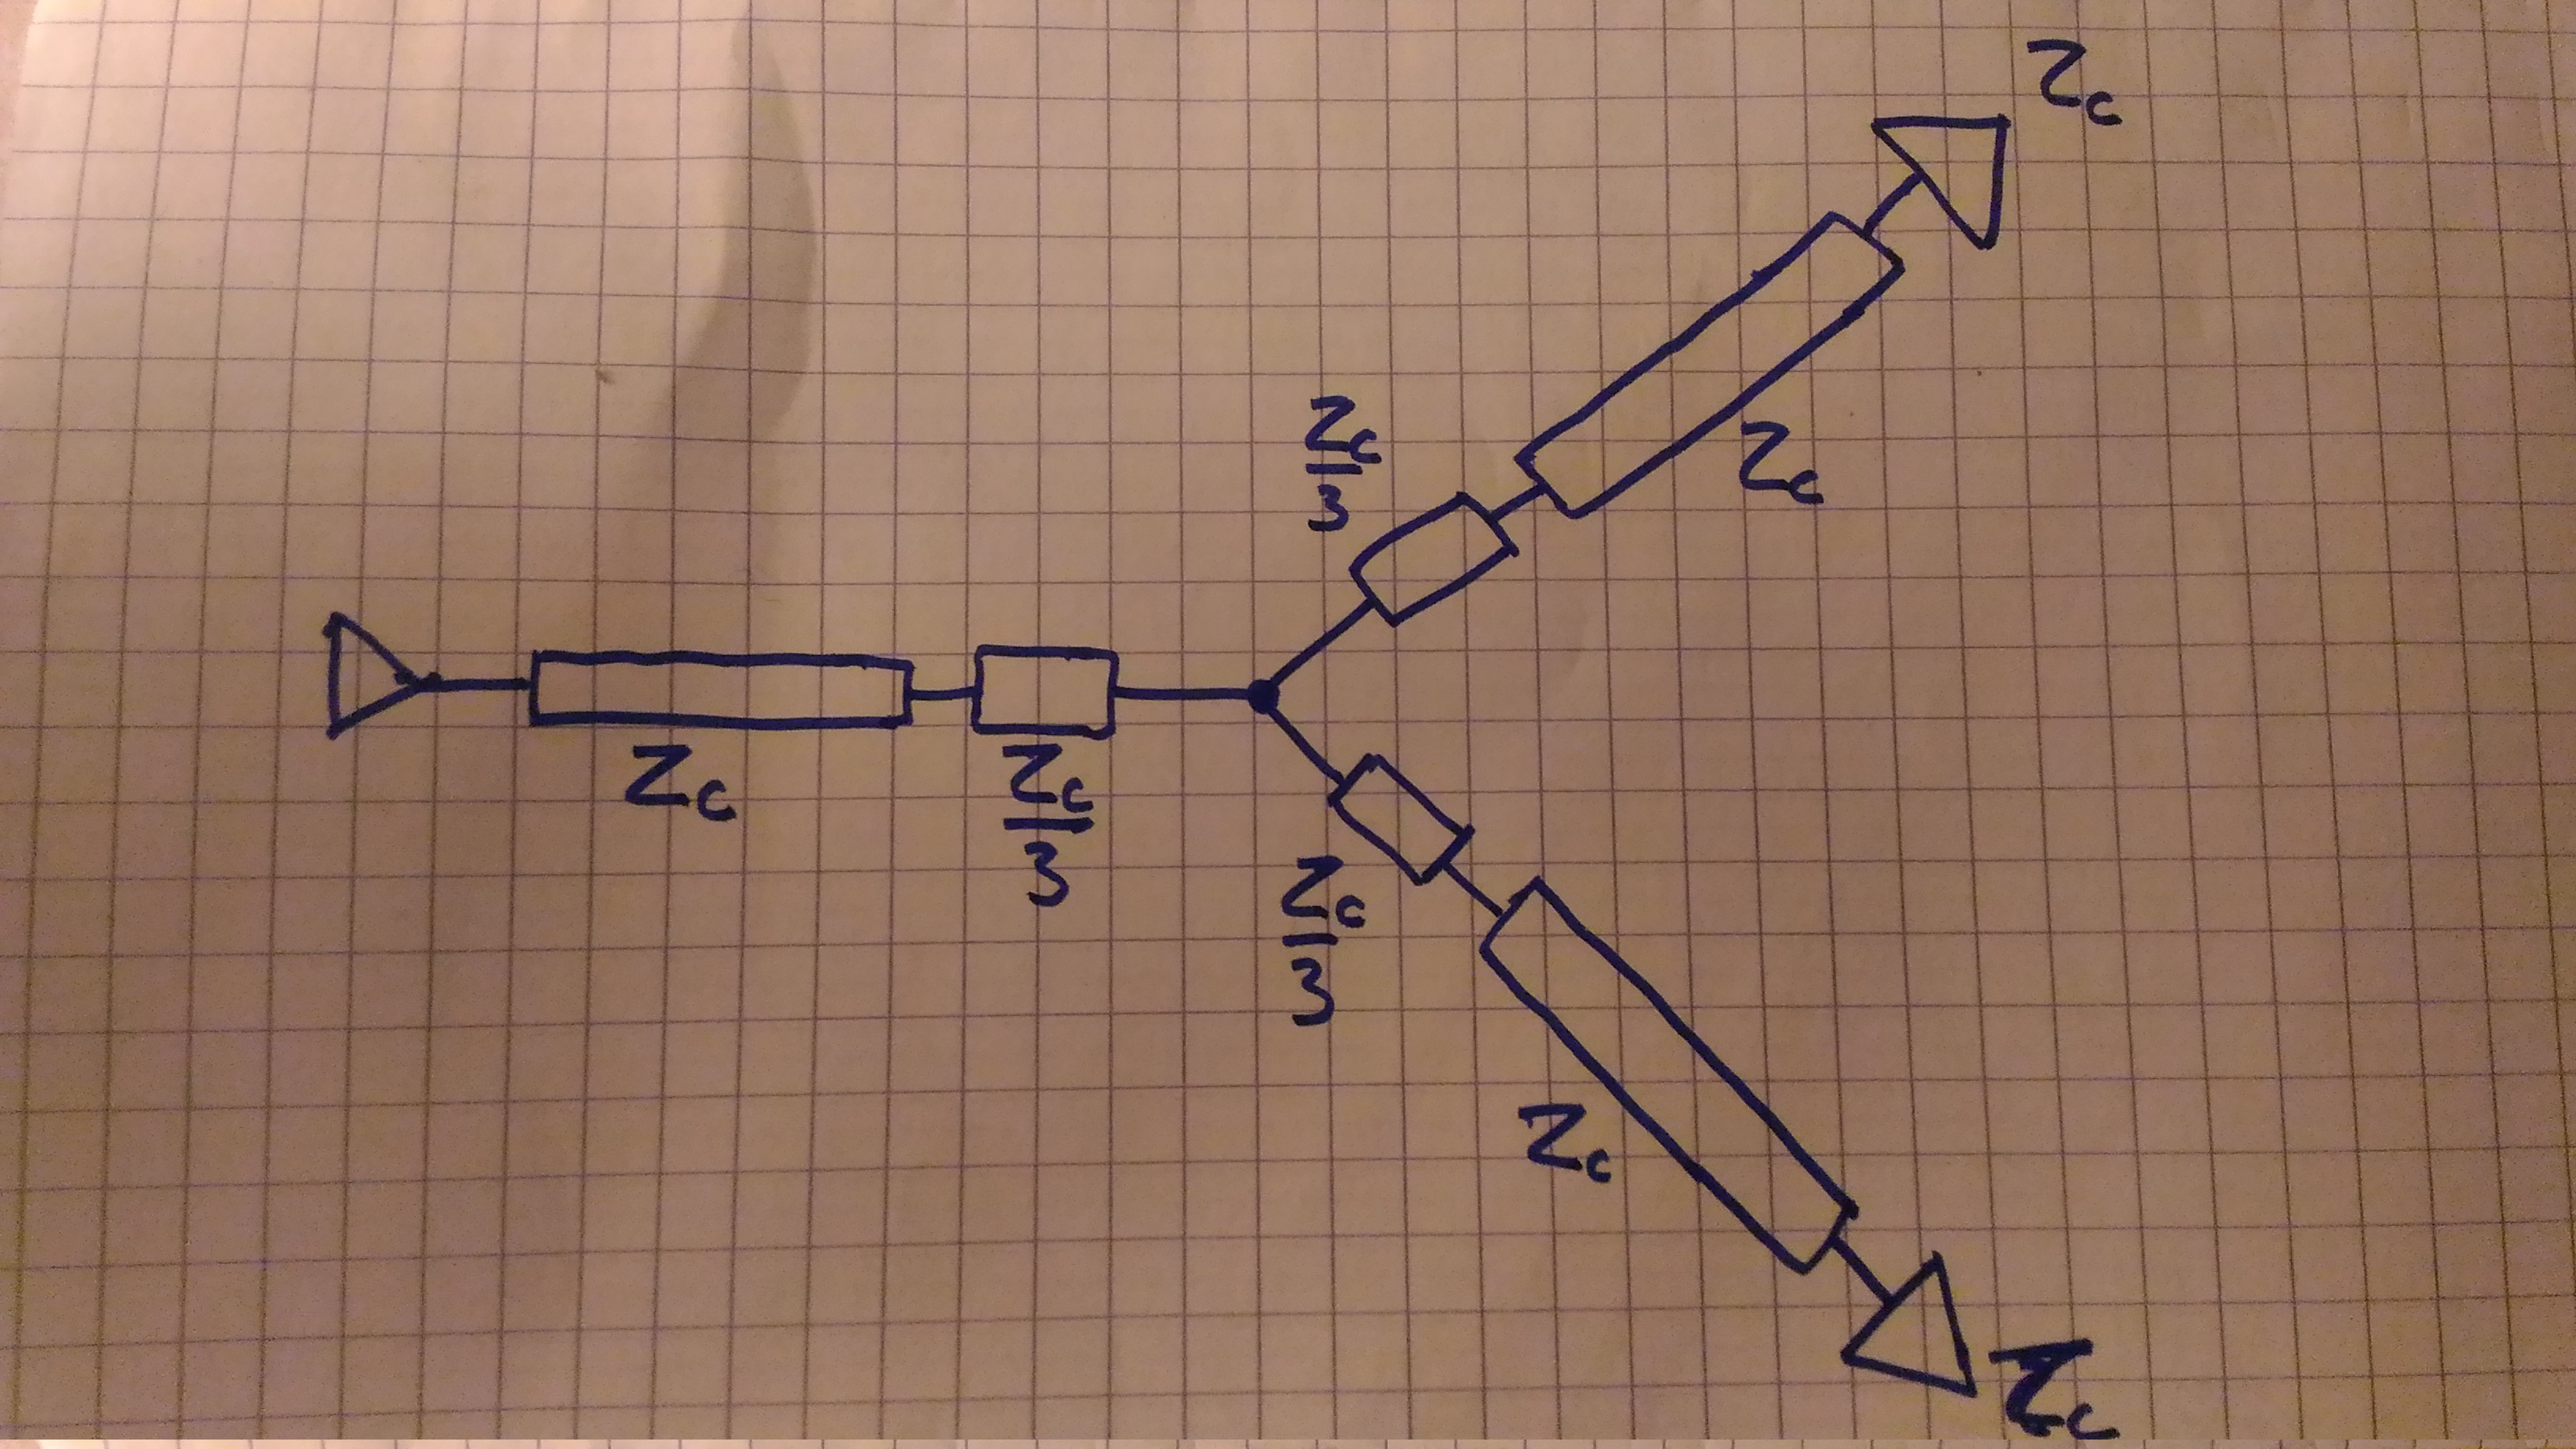 Zc
Zc/3
Zc
Zc
Zc/3
Zc/3
Zc
Zc